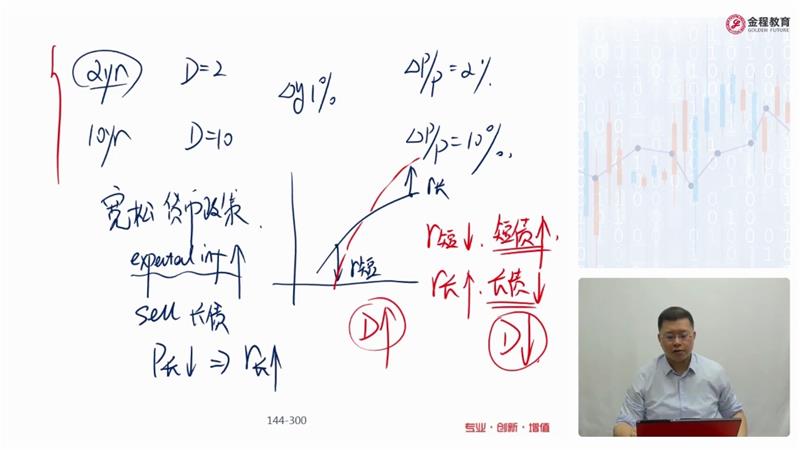 金程教育
GOLDEN FUTURE
2yr D=2 Δy1% ΔP/P=2%.
10yr D=10 ΔP/P=10%.
宽松货币政策.
r长
expected inf↑
r短
r短↓. 短债↑.
r长↑. 长债↓
sell 长债
D↑ D↓
P长↓ ⇒ r长↑
144-300
专业·创新·增值